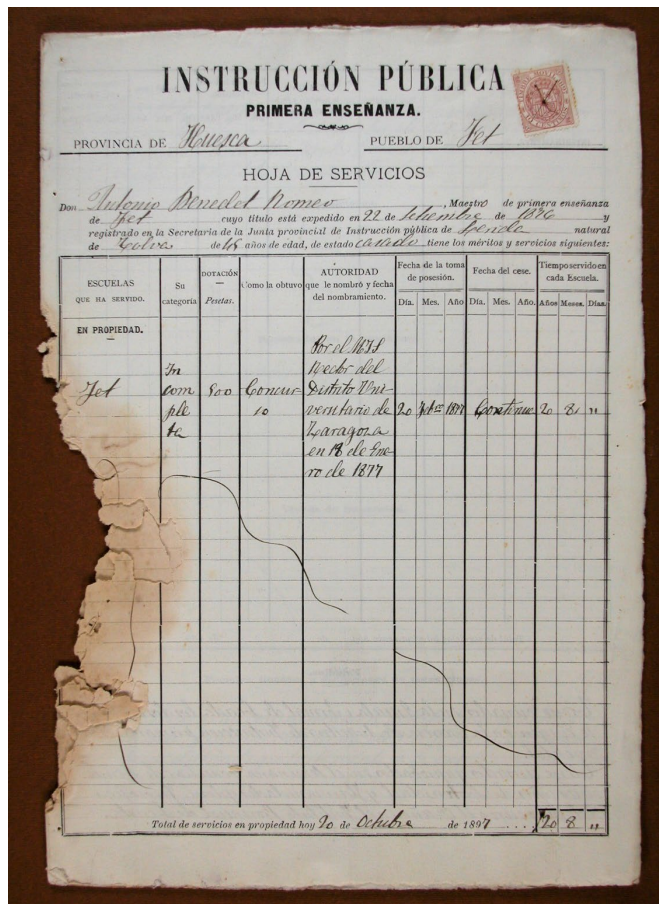 INSTRUCCIÓN PÚBLICA
PRIMERA ENSEÑANZA.
PROVINCIA DE Huesca PUEBLO DE Fet
HOJA DE SERVICIOS
Don Antonio Benedet Romeo, Maestro de primera enseñanza
de Fet cuyo título está expedido en 22 de Setiembre de 1876 y
registrado en la Secretaria de la Junta provincial de Instrucción pública de Lérida natural
de Tolva de 45 años de edad, de estado casado tiene los méritos y servicios siguientes:
ESCUELAS QUE HA SERVIDO.
Su categoría
DOTACIÓN Pesetas.
Como la obtuvo
AUTORIDAD que le nombró y fecha del nombramiento.
Fecha de la toma de posesión.
Fecha del cese.
Tiempo servido en cada Escuela.
Día. Mes. Año Día. Mes. Año. Años Meses. Días.
EN PROPIEDAD.
Fet
In
com
ple
ta
500
Concur
so
Por el
Rector del
Distrito Uni-
versitario de
Zaragoza
en 18 de Ene-
ro de 1877
20 1877 Continua 20 8 "
Total de servicios en propiedad hoy 20 de Octubre de 1897 .... 20 8 "